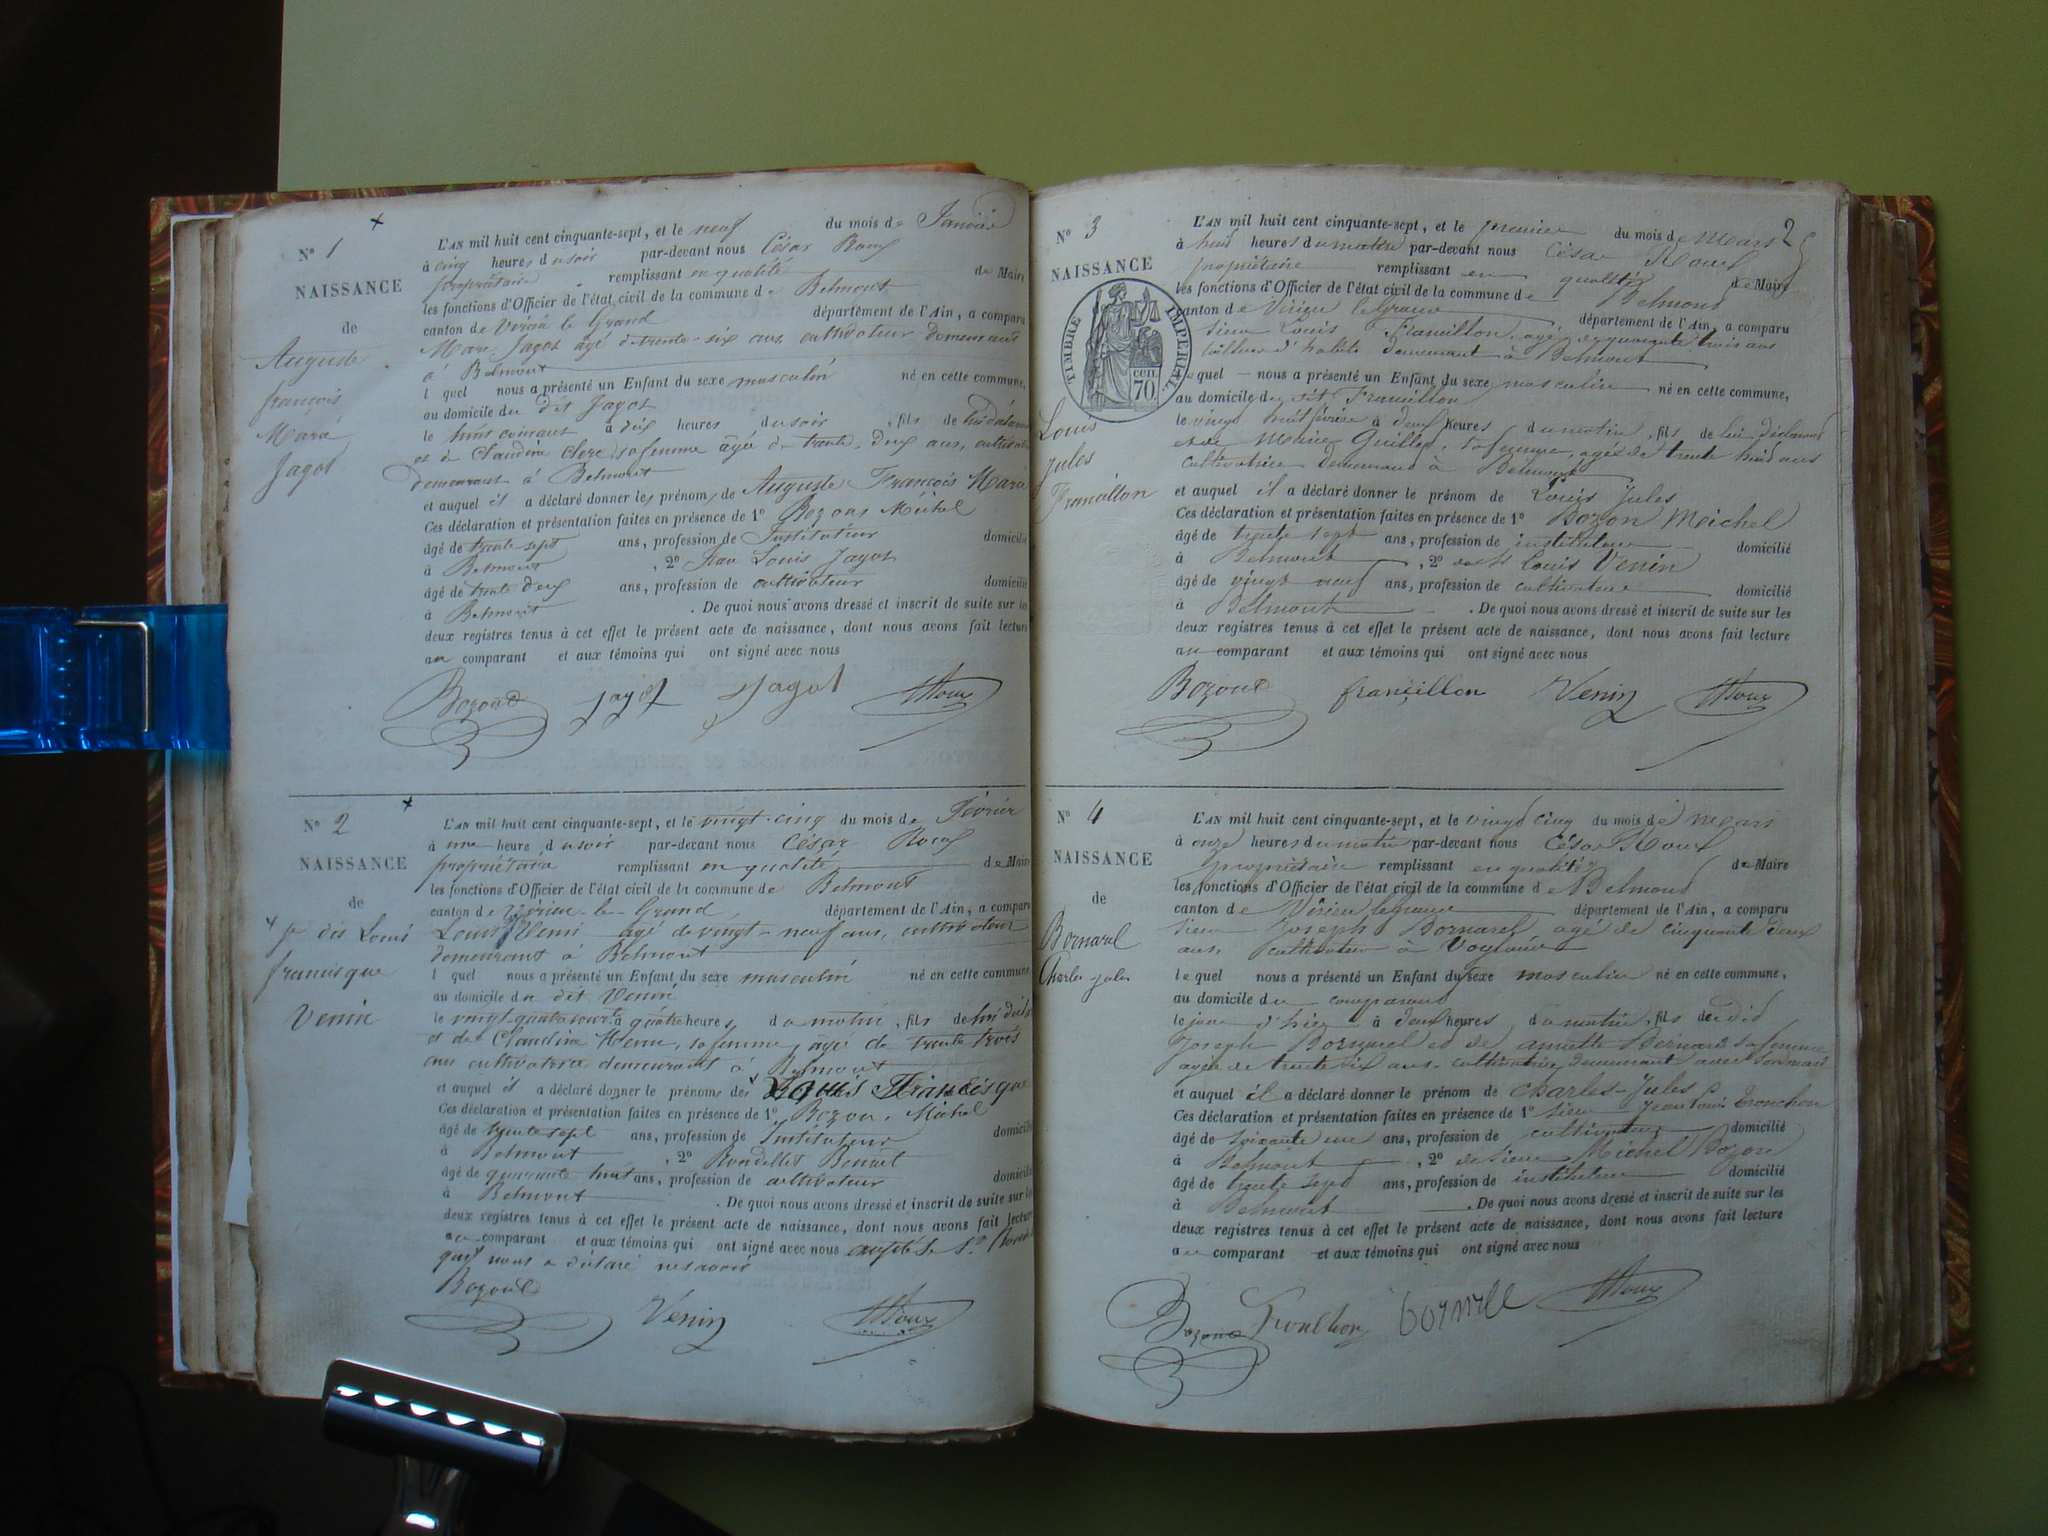 N° 1
NAISSANCE
de
Auguste
françois
Marie
Jagot
L'AN mil huit cent cinquante-sept, et le neuf du mois de Janvier
à cinq heures du soir par-devant nous César Roux
propriétaire remplissant en qualité de Maire
les fonctions d'Officier de l'état civil de la commune de Belmont
canton de Virieu le Grand département de l'Ain, a comparu
Jagot âgé de trente-six ans cultivateur demeurant
à Belmont
lequel nous a présenté un Enfant du sexe masculin né en cette commune,
au domicile du dit Jagot
le huit courant à dix heures du soir, fils de lui déclarant
et de Claudine Clerc sa femme âgée de trente-deux ans, cultivatrice
demeurant à Belmont
et auquel il a déclaré donner les prénoms de Auguste François Marie
Ces déclaration et présentation faites en présence de 1° Bozon Michel
âgé de trente sept ans, profession de Instituteur domicilié
à Belmont, 2° Jean Louis Jagot
âgé de trente deux ans, profession de cultivateur domicilié
à Belmont. De quoi nous avons dressé et inscrit de suite sur les
deux registres tenus à cet effet le présent acte de naissance, dont nous avons fait lecture
au comparant et aux témoins qui ont signé avec nous
Bozon Jagot Jagot Roux
N° 2
NAISSANCE
de
Louis
francisque
Venin
L'AN mil huit cent cinquante-sept, et le vingt-cinq du mois de Février
à une heure du soir par-devant nous César Roux
propriétaire remplissant en qualité de Maire
les fonctions d'Officier de l'état civil de la commune de Belmont
canton de Virieu-le-Grand, département de l'Ain, a comparu
Louis Venin âgé de vingt-neuf ans, cultivateur
demeurant à Belmont
lequel nous a présenté un Enfant du sexe masculin né en cette commune,
au domicile du dit Venin
le vingt-quatre courant à quatre heures du matin, fils de lui dit
et de Claudine sa femme, âgé de trente trois
ans cultivatrice demeurant à Belmont
et auquel il a déclaré donner le prénoms des Louis Francisque
Ces déclaration et présentation faites en présence de 1° Bozon, Michel
âgé de trente sept ans, profession de Instituteur domicilié
à Belmont, 2° Rondellet Benoit
âgé de quarante huit ans, profession de cultivateur domicilié
à Belmont. De quoi nous avons dressé et inscrit de suite sur les
deux registres tenus à cet effet le présent acte de naissance, dont nous avons fait lecture
au comparant et aux témoins qui ont signé avec nous excepté le Sr
qui nous a déclaré ne savoir
Bozon
Venin Roux
N° 3
NAISSANCE
TIMBRE IMPÉRIAL
70 CEN
Louis
Jules
Francillon
2
L'AN mil huit cent cinquante-sept, et le premier du mois de Mars
à huit heures du matin par-devant nous César Roux
propriétaire remplissant en qualité de Maire
les fonctions d'Officier de l'état civil de la commune de Belmont
canton de Virieu le Grand département de l'Ain, a comparu
sieur Louis Francillon, âgé de quarante trois ans
tailleur d'habits demeurant à Belmont
lequel nous a présenté un Enfant du sexe masculin né en cette commune,
au domicile du dit Francillon
le vingt huit février à deux heures du matin, fils de lui déclarant
et de Marie Guillot, sa femme, agée de trente huit ans
cultivatrice demeurant à Belmont
et auquel il a déclaré donner le prénom de Louis Jules
Ces déclaration et présentation faites en présence de 1° Bozon Michel
âgé de trente sept ans, profession de instituteur domicilié
à Belmont, 2° Louis Venin
âgé de vingt neuf ans, profession de cultivateur domicilié
à Belmont. De quoi nous avons dressé et inscrit de suite sur les
deux registres tenus à cet effet le présent acte de naissance, dont nous avons fait lecture
au comparant et aux témoins qui ont signé avec nous
Bozon françillon Venin Roux
N° 4
NAISSANCE
de
Bornarel
Charles jules
L'AN mil huit cent cinquante-sept, et le vingt cinq du mois de Mars
à onze heures du matin par-devant nous César Roux
propriétaire remplissant en qualité de Maire
les fonctions d'Officier de l'état civil de la commune de Belmont
canton de Virieu le grand département de l'Ain, a comparu
sieur Joseph Bornarel agé de cinquante deux
ans, cultivateur à
lequel nous a présenté un Enfant du sexe masculin né en cette commune,
au domicile du comparant
le jour d'hier à deux heures du matin, fils de dit
Joseph Bornarel et de Bernard sa femme
agée de trente six ans cultivatrice demeurant avec son mari
et auquel il a déclaré donner le prénom de Charles-Jules
Ces déclaration et présentation faites en présence de 1° sieur Jean Louis Tronchon
âgé de soixante un ans, profession de cultivateur domicilié
à Belmont, 2° de sieur Michel Bozon
âgé de trente sept ans, profession de instituteur domicilié
à Belmont. De quoi nous avons dressé et inscrit de suite sur les
deux registres tenus à cet effet le présent acte de naissance, dont nous avons fait lecture
au comparant et aux témoins qui ont signé avec nous
Bozon Tronchon Roux